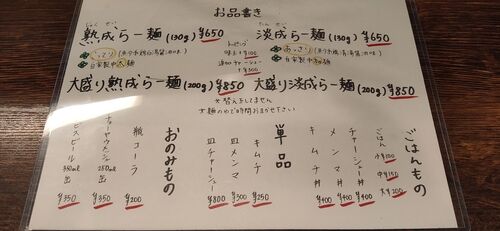 お品書き
熟成らー麺(130g) ¥650
こってり
自家製中太麺
淡成らー麺(130g) ¥650
あっさり
自家製中細麺
トッピング
味玉 ¥100
追加チャーシュー
¥300
大盛り熟成らー麺(200g) ¥850
大盛り淡成らー麺(200g) ¥850
☆替え玉しません
ごはんもの
ごはん 小¥100
中¥150
大¥200
チャーシュー丼 ¥400
メンマ丼 ¥400
キムチ丼 ¥400
単品
キムチ ¥250
皿メンマ ¥300
皿チャーシュー ¥800
おのみもの
瓶コーラ ¥200
チョーヤウメッシュ 250ml缶 ¥350
ヱビスビール 350ml缶 ¥350